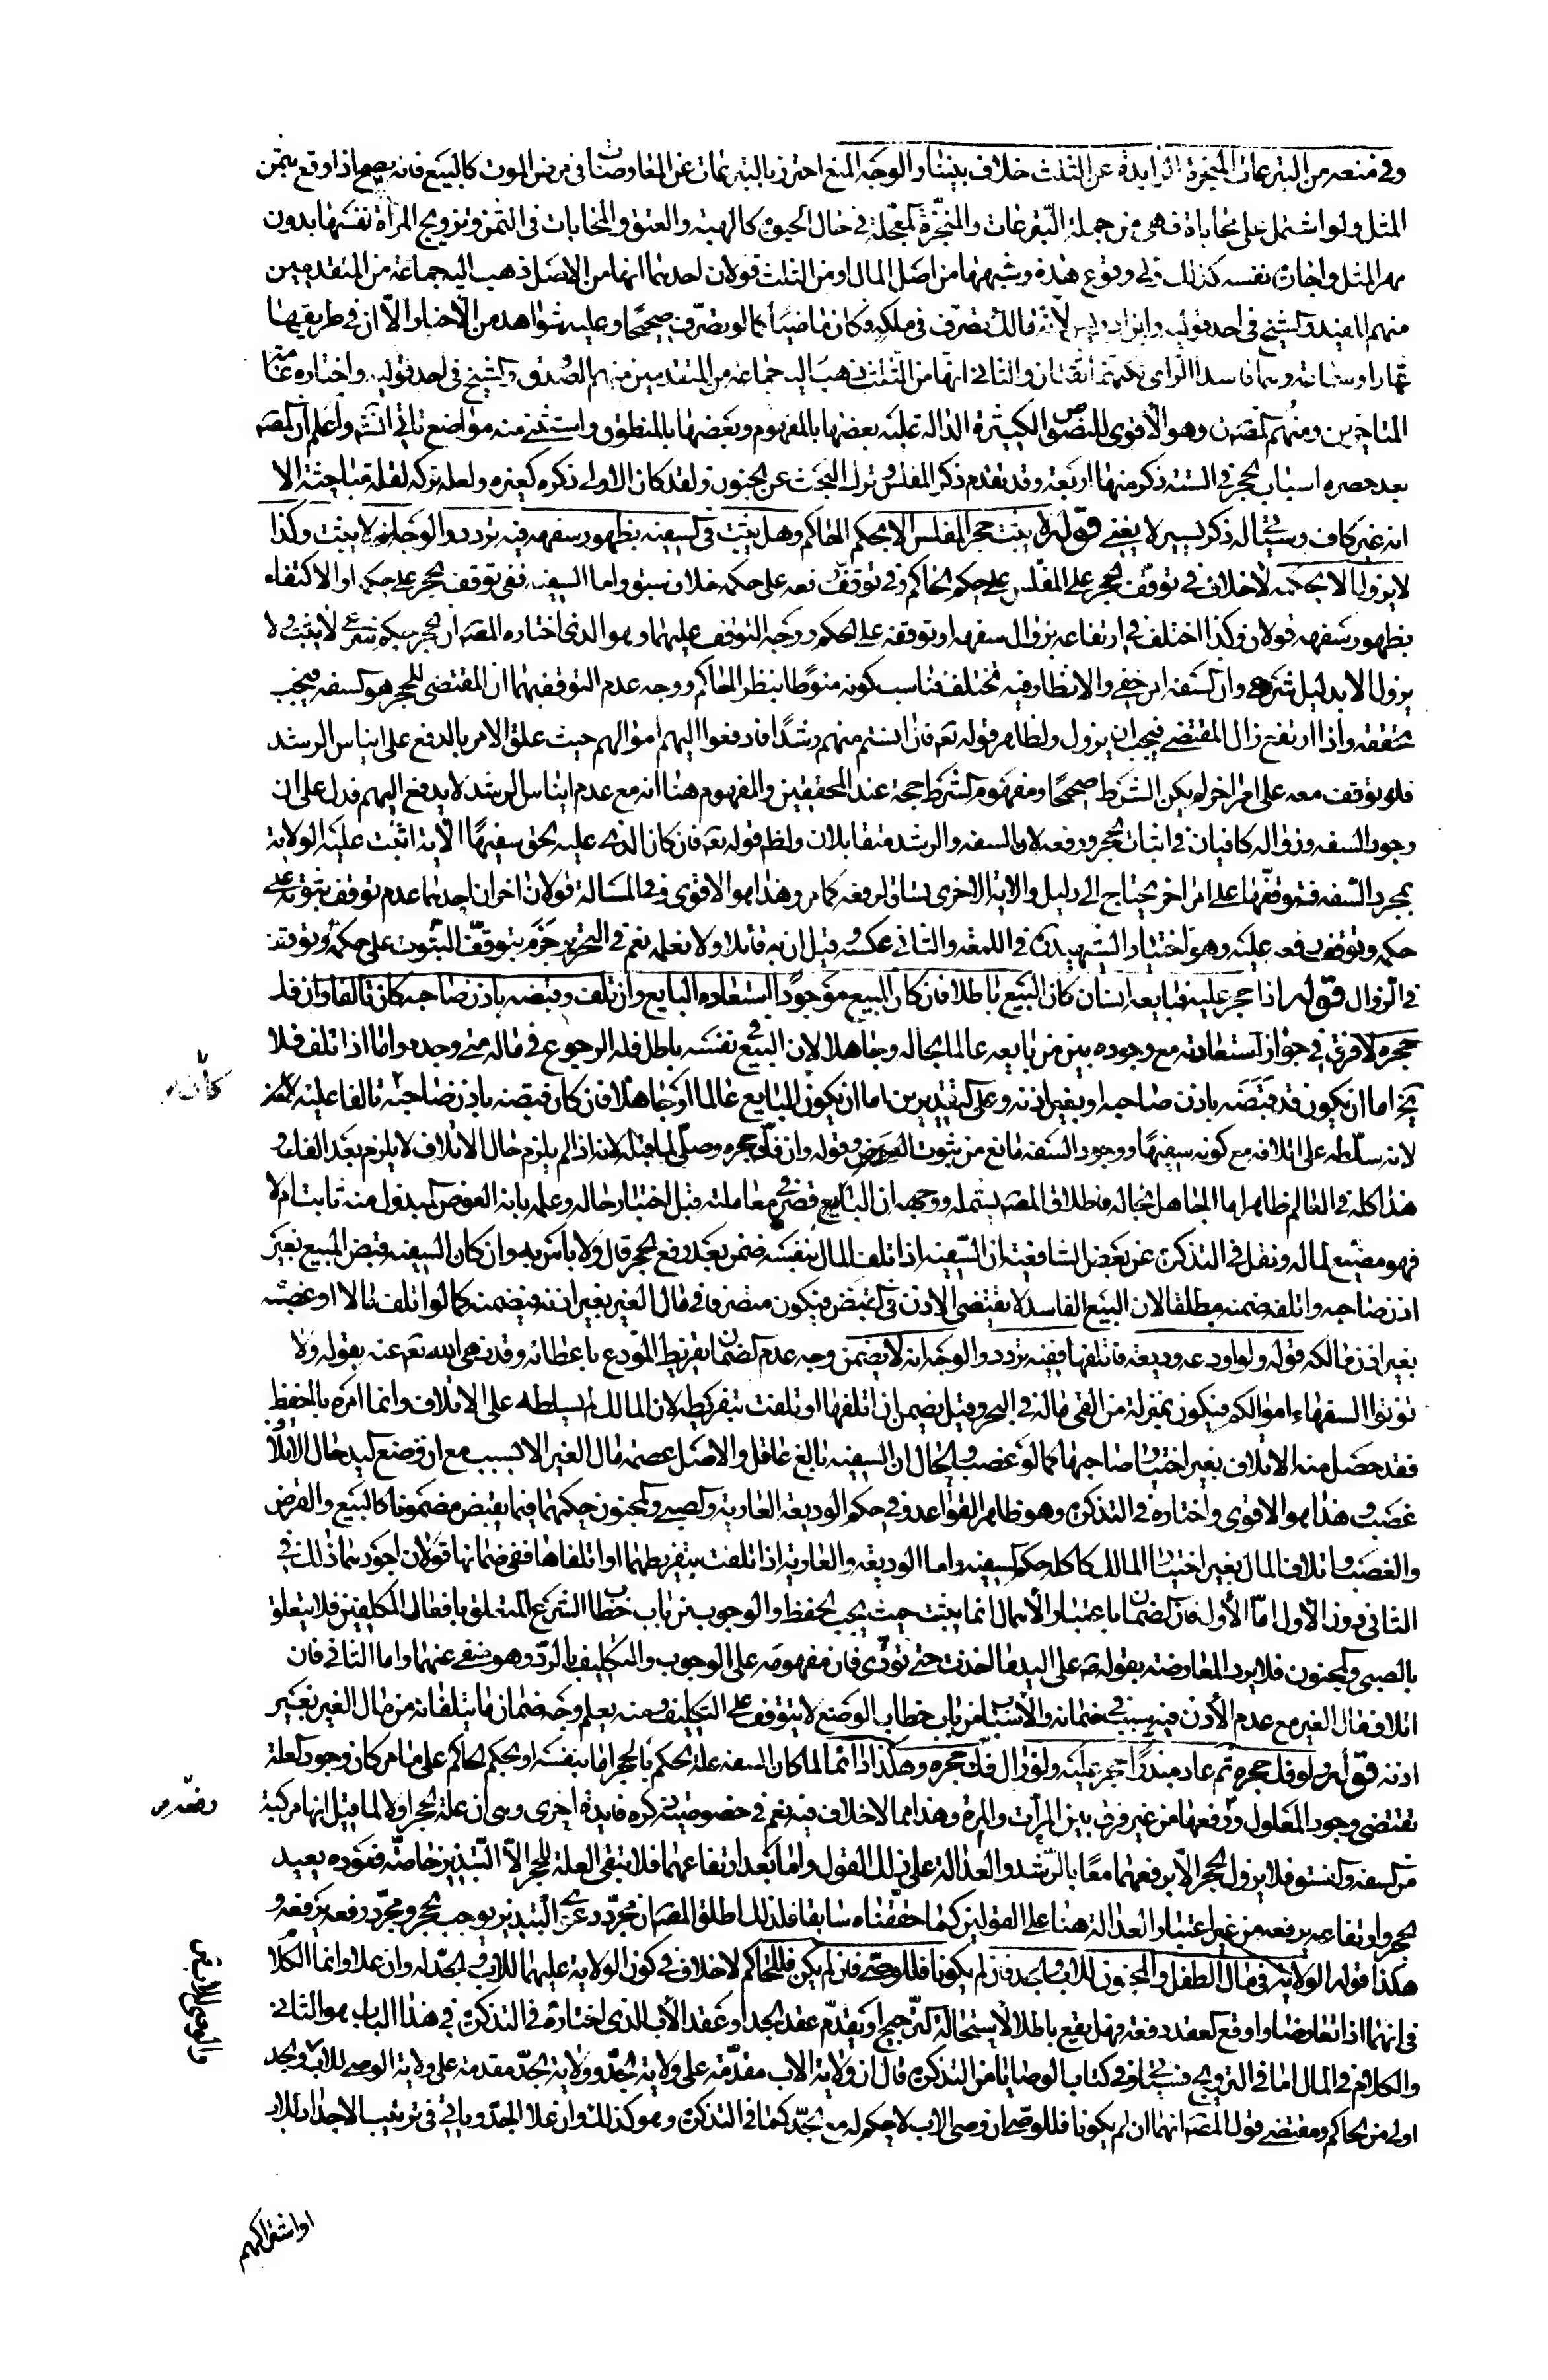 وفي منعه من التبرعات المنجزة الزايدة عن الثلث خلاف بيننا والوجه المنع احترز بالتبرعات عن المعاوضات في مرض الموت كالبيع فانه يصح اذا وقع بثمن
المثل ولو اشتمل على محاباة فهي من جملة التبرعات والمنجزة المعجلة في حال الحيوة كالهبة والعتق والمحابات في الثمن وتزويج المراة نفسها بدون
مهر المثل واجارة نفسه كذلك وفي وقوع هذه وشبهها من اصل المال او من الثلث قولان احدهما انها من الاصل ذهب اليه جماعة من المتقدمين
منهم المفيد والشيخ في احد قوليه وابن ادريس لانه مالك تصرف في ملكه وكان ماضيا كما لو تصرف صحيحا وعليه شواهد من الاخبار الا ان في طريقها
عمارا وسماعة وهما فاسدا الراي لكنهما ثقتان والثاني انها من الثلث ذهب اليه جماعة من المتقدمين منهم الصدوق والشيخ في احد قوليه واختاره عامة
المتاخرين ومنهم المصنف وهو الاقوى للنصوص الكثيرة الدالة عليه بعضها بالمفهوم وبعضها بالمنطوق واستثنى منه مواضع تاتي انشه واعلم ان المصه
بعد حصره اسباب الحجر في الستة ذكر منها اربعة وقد تقدم ذكر المفلس وترك البحث عن المجنون ولقد كان الاولى ذكره كغيره ولعله تركه لقلة مباحثه الا
انه غير كاف وسياتي له ذكر يسير لا يغني قوله لا يثبت حجر المفلس الا بحكم الحاكم وهل يثبت في السفيه بظهور سفهه فيه تردد والوجه انه لا يثبت وكذا
لا يزول الا بحكمه لا خلاف في توقف الحجر على المفلس على حكم الحاكم وفي توقف رفعه على حكمه خلاف سبق واما السفيه ففي توقف الحجر على حكمه او الاكتفاء
بظهور سفهه قولان وكذا اختلف في ارتفاعه بزوال سفهه او توقفه على الحكم ووجه التوقف عليهما وهو الذي اختاره المصه ان الحجر حكم شرعي لا يثبت ولا
يزول الا بدليل شرعي وان السفه امر خفي والانظار فيه تختلف فناسب كونه منوطا بنظر الحاكم ووجه عدم التوقف فيهما ان المقتضي للحجر هو السفه فيجب
تحققه واذا ارتفع زال المقتضي فيجب ان يزول ولظاهر قوله تعه فان انستم منهم رشدا فادفعوا اليهم اموالهم حيث علق الامر بالدفع على ايناس الرشد
فلو توقف معه على امر اخر لم يكن الشرط صحيحا ومفهوم الشرط حجة عند المحققين والمفهوم هنا انه مع عدم ايناس الرشد لا يدفع اليهم فدل على ان
وجود السفه وزواله كافيان في اثبات الحجر ورفعه لان السفه والرشد متقابلان ولظم قوله تعه فان كان الذي عليه الحق سفيها الاية اثبت عليه الولاية
بمجرد السفه فتوقفها على امر اخر يحتاج الى دليل والاية الاخرى تساق لرفعه كما مر وهذا هو الاقوى وفي المسالة قولان اخران احدهما عدم توقف ثبوته على
حكمه وتوقف رفعه عليه وهو اختيار الشهيد ره في اللمعة والثاني عكسه وقيل ان به قائلا ولا نعلمه نعم في التحرير جزم بتوقف الثبوت على حكمه وتوقف
في الزوال قوله اذا حجر عليه فبايعه انسان كان البيع باطلا فان كان المبيع موجودا استعاده البايع وان تلف وقبضه باذن صاحبه كان تالفا وان فك
حجره لا فرق في جواز استعادته مع وجوده بين من بايعه عالما بحاله وجاهلا لان البيع في نفسه باطل فله الرجوع في ماله متى وجده واما اذا تلف فلا
يخ اما ان يكون قد قبضه باذن صاحبه او بغير اذنه وعلى التقديرين اما ان يكون المبايع عالما او جاهلا فان كان قبضه باذن صاحبه كان تالفا عليه
لانه سلطه على اتلافه مع كونه سفيها ووجود السفه مانع من ثبوت العوض وقوله وان فك حجره وصلي لما قبله لانه اذا لم يلزم حال الاتلاف لا يلزم بعد الفك و
هذا كله في العالم ظاهر اما الجاهل بحاله فاطلاق المصه يشمله ووجهه ان البايع قصر في معاملته قبل اختبار حاله وعلمه بانه العوض المبذول منه ثابت ام لا
فهو مضيع لماله ونقل في التذكرة عن بعض الشافعية ان السفيه اذا تلف المال بنفسه ضمن بعد رفع الحجر قال ولا باس به وان كان السفيه قبض المبيع بغير
اذن صاحبه واتلفه ضمنه مطلقا لان البيع الفاسد لا يقتضي الاذن في القبض فيكون متصرفا في مال الغير بغير اذنه فيضمنه كما لو اتلف مالا او غصبه
بغير اذن مالكه قوله ولو اودعه وديعة فاتلفها ففيه تردد والوجه انه لا يضمن وجه عدم الضمان تفريط المودع باعطائه وقد نهى الله تعه عنه بقوله ولا
تؤتوا السفهاء اموالكم فيكون بمنزلة من القى ماله في البحر وقيل يضمن ان اتلفها او تلفت بتفريطه لان المالك لم يسلطه على الاتلاف وانما امره بالحفظ
فقد حصل منه الاتلاف بغير اختيار صاحبها كما لو غصب والحال ان السفيه بالغ عاقل والاصل عصمة مال الغير الا بسبب مع ان وضع اليد حال الاتلاف
غصب وهذا هو الاقوى واختاره في التذكرة وهو ظاهر القواعد وفي حكم الوديعة العارية والصبي والمجنون حكمهما فيما يقبض مضمونا كالبيع والقرض
والغصب واتلاف المال بغير اختيار المالك كذلك حكم السفيه واما الوديعة والعارية اذا تلفت بتفريطهما او اتلفاها ففي ضمانها قولان اجودهما ذلك في
الثاني دون الاول اما الاول فان الضمان باعتبار الاهمال انما يثبت حيث يجب الحفظ والوجوب من باب خطاب الشرع المتعلق بافعال المكلفين فلا يتعلق
بالصبي والمجنون فلا يرد المعارضة بقوله صه على اليد ما اخذت حتى تؤدي فان مفهومه على الوجوب والتكليف بالرد وهو منفي عنهما واما الثاني فان
اتلاف مال الغير مع عدم الاذن فيه سبب في ضمانه والاسباب من باب خطاب الوضع لا يتوقف على التكليف ومنه يعلم وجه ضمان ما يتلفانه من مال الغير بغير
اذنه قوله ولو فك حجره ثم عاد مبذرا حجر عليه ولو زال فك حجره وهكذا دائما لما كان السفه علة الحكم بالحجر اما بنفسه او بحكم الحاكم على ما مر كان وجود العلة
تقتضي وجود المعلول ورفعها من غير فرق بين المرات والمرة وهذا مما لا خلاف فيه نعم في خصوصية ذكره فايدة اخرى وهي ان علة الحجر اولا لما قيل انها مركبة
من السفه والفسق فلا يزول الحجر الا برفعهما معا بالرشد والعدالة على ذلك القول واما بعد ارتفاعهما فلا تبقى العلة للحجر الا التبذير خاصة فعوده يعيد
الحجر وارتفاعه يرفعه من غير اعتبار العدالة هنا على القولين كما حققناه سابقا فلذلك اطلق المصه ان مجرد عود التبذير يوجب الحجر ومجرد رفعه يرفعه و
هكذا قوله الولاية في مال الطفل والمجنون للاب والجد فان لم يكونا فللوصي فان لم يكن فللحاكم لا خلاف في كون الولاية عليهما للاب والجد له وان علا وانما الكلام
في انهما اذا تعارضا واوقع العقد دفعة فهل يقع باطلا لاستحالة الترجيح او يقدم عقد الجد او عقد الاب الذي اختاره في التذكرة في هذا الباب هو الثاني
والكلام في المال اما في التزويج فسياتي وفي كتاب الوصايا من التذكرة قال ان ولاية الاب مقدمة على ولاية الجد وولاية الجد مقدمة على ولاية الوصي للاب والجد
اولى من الحاكم ومقتضى قول المصه انهما ان لم يكونا فللوصي ان وصي الاب لا حكم له مع الجد كما في التذكرة وهو كذلك وان علا الجد وياتي في ترتيب الاجداد للاب
كان
رفعه ص
والوصي للاب ص
او اشتراكهم